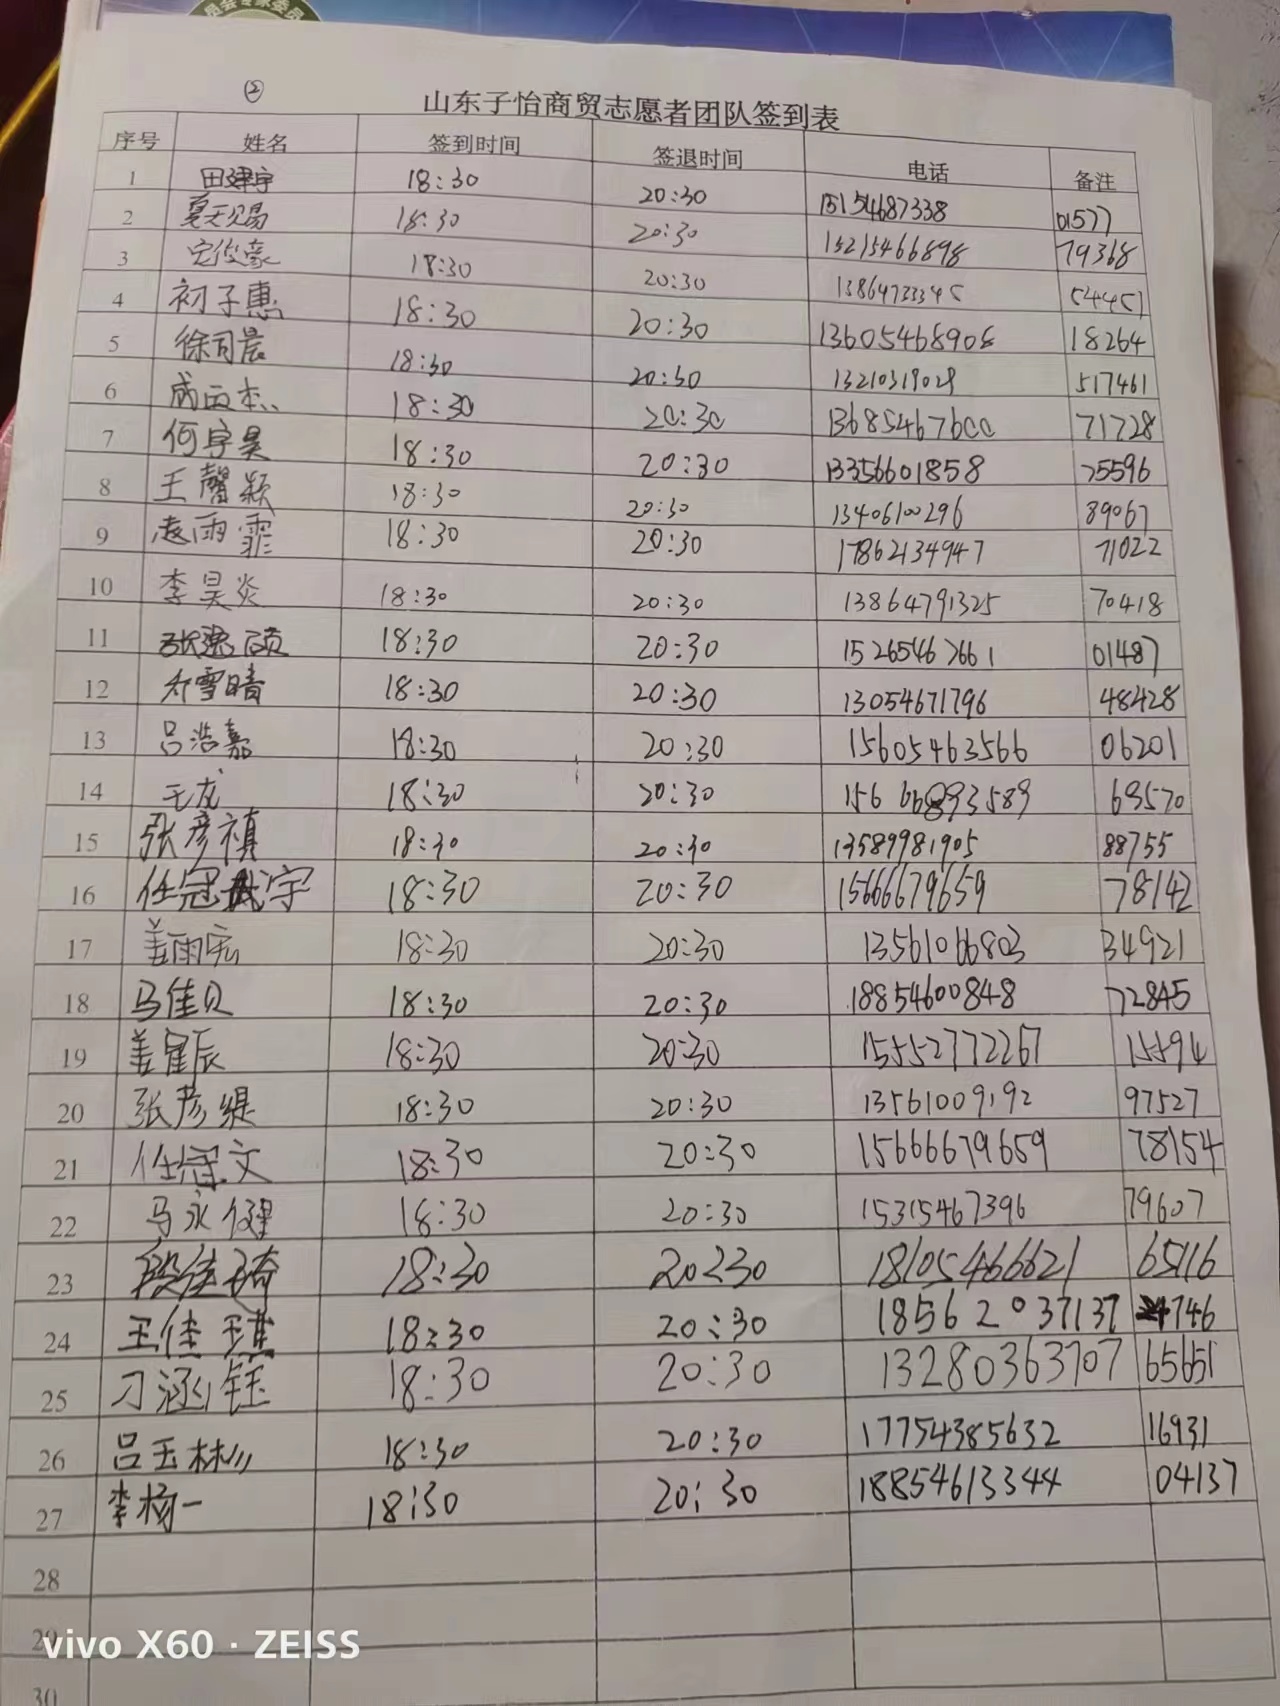 员会专家委员
②
山东子怡商贸志愿者团队签到表
序号 姓名 签到时间 签退时间 电话 备注
1 田建宇 18:30 20:30 15154687338 01577
2 夏天赐 18:30 20:30 15215466898 79368
3 俊豪 18:30 20:30 13864733345 54451
4 初子惠 18:30 20:30 13605468908 18264
5 徐司晨 18:30 20:30 13210319029 517461
6 18:30 20:30 13685467600 71728
7 何宇昊 18:30 20:30 13356601858 75596
8 王馨颖 18:30 20:30 13406100296 89067
9 凌雨霏 18:30 20:30 17862134947 71022
10 李昊炎 18:30 20:30 13864791325 70418
11 张 硕 18:30 20:30 15265467661 01487
12 乔雪晴 18:30 20:30 13054671796 48428
13 吕浩嘉 18:30 20:30 15605463566 06201
14 王龙 18:30 20:30 156 893589 69570
15 张彦禛 18:30 20:30 13589981905 88755
16 任冠宇 18:30 20:30 15666679659 78142
17 姜雨宏 18:30 20:30 13561066803 34921
18 马佳贝 18:30 20:30 18854600848 72845
19 姜星辰 18:30 20:30 15552772267 15594
20 张彦缇 18:30 20:30 13561009192 97527
21 任冠文 18:30 20:30 15666679659 78154
22 马永健 18:30 20:30 15315467396 79607
23 段佳琦 18:30 20:30 18105466621 65116
24 王佳琪 18:30 20:30 18562037137 746
25 刁涵钰 18:30 20:30 13280363707 65651
26 吕玉彬 18:30 20:30 17754385632 16931
27 李杨一 18:30 20:30 18854613344 04137
28
29
30
vivo X60 · ZEISS